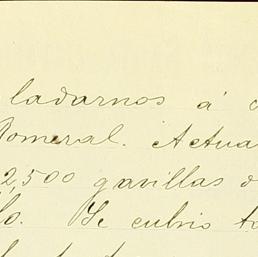 ladarnos á
Romeral. Actua
2,500 gavillas d
lo. Se cubrió to